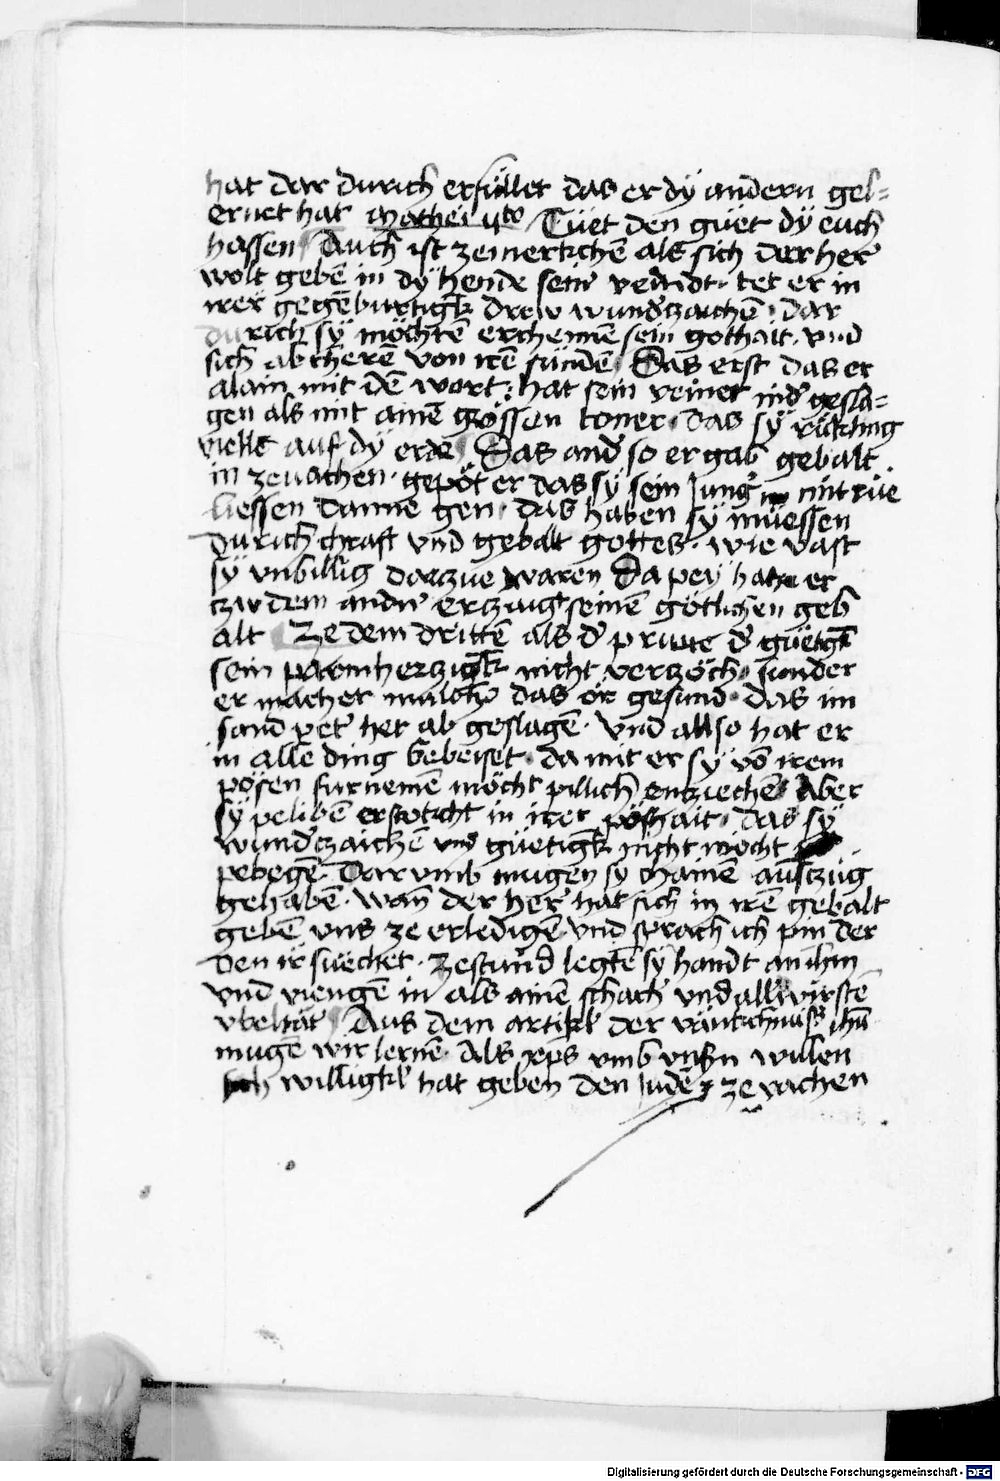 hat dar durich erfüllet das er dÿ andern gel=
ernet hat Mathei vto Tüet den güet dÿ euch
hassen Auch ist ze merkchē als sich der her
wolt gebē in dÿ hende seinr veindt · tet er in
irer gegēburtigk drew wundzaichē · dar
durich sÿ möchtē erchennē sein gothait · vnd
sich abcherē von irē sündē Das erst das er
alain mit dē wort · hat sein veinet nid gesla=
gen als mit ainē grossen toner · das sÿ rükling
vielle auf dÿ erde Das and so er gab gebalt
in ze vachen · gepöt er das sÿ sein Jung mit rüe
liessen danne gen · das haben sÿ müessen
durich chraft vnd gebalt gottes · wie vast
sÿ vnbillig darzue waren Da peÿ hat er
tzw dem andn erzaigt seinē götlichen geb
alt Ze dem drittē als d prunne d güetigk
sein parmherzigk nicht verzöch · sunder
er machet malcho das ör gesund · das im
sand peter het ab geslagē · Vnd allso hat er
in alle ding bebeiset · da mit er sÿ vō irem
pösen furnemē möcht pillich entziechē Aber
sÿ pelibē erstokcht in irer pöshait · das sÿ
wundzaichē vnd güetigk nicht möcht
pebegē Dar vmb mugen sy chainē auszüg
gehabē · Wan der her hat sich in irē gebalt
gebē vns ze erledigē vnd sprach ich pin der
den ir suechet · Zestund legtē sÿ handt an ihm
vnd viengē in als ainē schacher vnd allwirstē
vbeltät Aus dem artikl der vänkchnuss ihū
mugē wir lernē · Als xps vmb vnsn willen
sich willigkl hat geben den Judē ze vachen
Digitalisierung gefördert durch die Deutsche Forschungsgemeinschaft - DFG